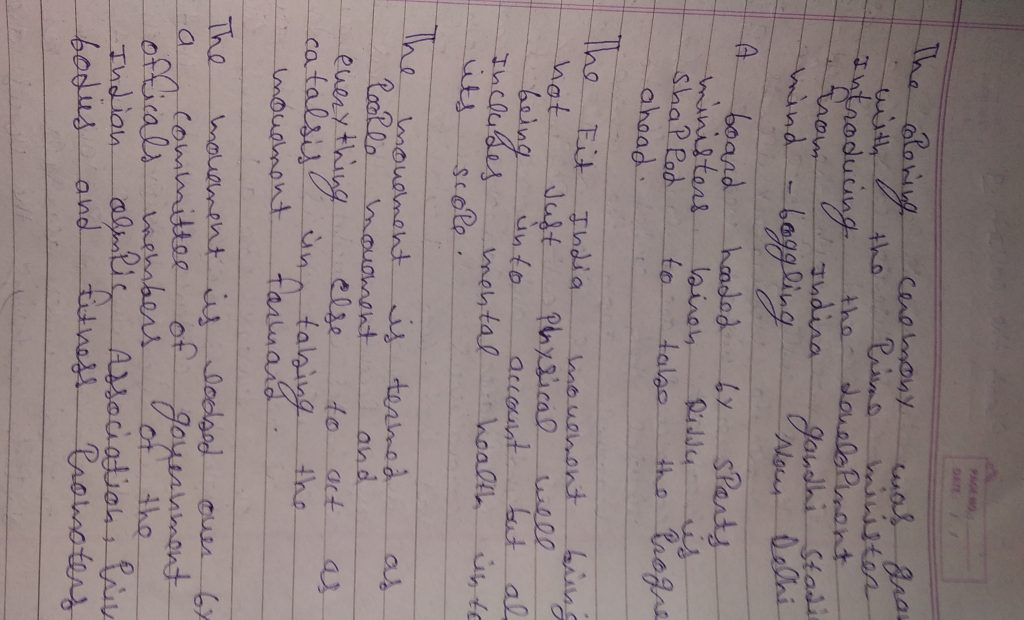 PAGE NO.
DATE
The oponing ceromony was
with tho Primo minister
Introducing the dovelopmont
from Indira gandhi Stadi
mind - boggling Now Dolhi
A board hoded by sports
ministors kiron Rillu is
shapped to tako the Progre
ahoad.
The Fit India movomont
not Just Physical woll
being into account but al
Includes montal hoalth into
its scope.
The movomont is tormod as
Pooplo movomont and
everything olso to act as
catalsis in taking the
movomont forward.
The movoment is looked over by
a committoo of government
officials members of the
Indian olmpic Association, Priv
bodies and fitness Promoters